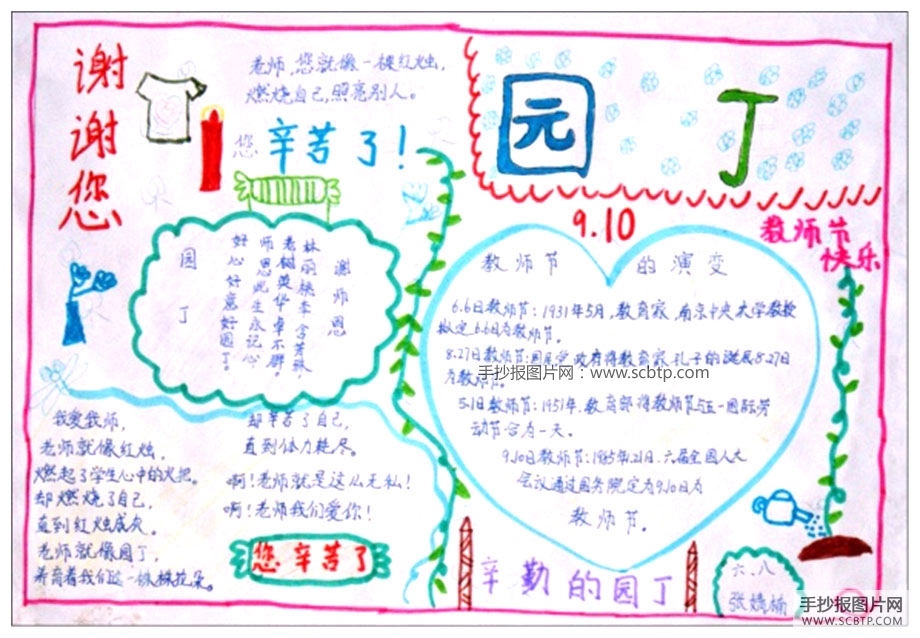 谢谢您
老师,您就像一根红烛,
燃烧自己,照亮别人。
您辛苦了!
园丁
9.10
教师节
快乐
谢师恩
林丽桃李含芳林,
老树英华卓不群。
师恩此生永记心,
好心好意好园丁。
园丁
教师节的演变
6.6日教师节:1931年5月,教育家,南京中央大学教授
拟定6.6日为教师节。
8.27日教师节:国民党政府将教育家孔子的诞辰8.27日
为教师节。
手抄报图片网:www.scbtp.com
5.1日教师节:1951年,教育部将教师节与五一国际劳
动节合为一天。
9.10日教师节:1985年,21日,六届全国人大
会议通过国务院定为9.10日为
教师节。
我爱我师,
老师就像红烛,
燃起了学生心中的火把。
却燃烧了自己,
直到红烛成灰。
老师就像园丁,
养育着我们这一株株花朵。
却辛苦了自己,
直到体力耗尽。
啊!老师就是这么无私!
啊!老师我们爱你!
您辛苦了
辛勤的园丁
六、八
张嫱楠
手抄报图片网
WWW.SCBTP.COM